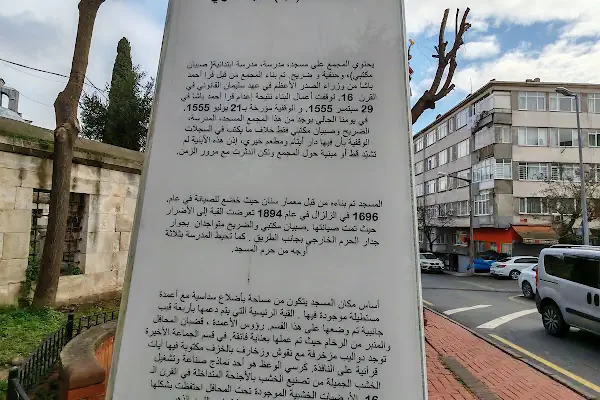 يحتوي المجمع على مسجد، مدرسة، مدرسة ابتدائية( صبيان
مكتبي)، وحنفية و ضريح. تم بناء المجمع من قبل قرا أحمد
باشا من وزراء الصدر الأعظم في عهد سليمان القانوني في
القرن 16. توقفت أعمال البناء نتيجة إعدام قرا أحمد باشا في
29 سبتمبر 1555. و الوقفية مؤرخة بـ21 يوليو 1555.
في يومنا الحالي يوجد من هذا المجمع المسجد، المدرسة،
الضريح وصبيان مكتبي فقط خلاف ما يكتب في السجلات
الوقفية بأن فيها دار أيتام ومطعم خيري، إذن هذه الأبنية لم
تشيّد قط أو مبنية حول المجمع ولكن اندثرت مع مرور الزمن.
المسجد تم بناءه من قبل معمار سنان حيث خضع للصيانة في عام
1696 في الزلزال في عام 1894 تعرضت القبة إلى الأضرار
حيث تمت صيانتها .صبيان مكتبي والضريح متواجدان بجوار
جدار الحرم الخارجي بجانب الطريق . كما تحيط المدرسة بثلاثة
أوجه من حرم المسجد.
أساس مكان المسجد يتكون من مساحة بأضلاع سداسية مع أعمدة
مستطيلة موجودة فيها . القبة الرئيسية التي يتم دعمها بأربعة قبب
جانبية تم وضعها على هذا القسم. رؤوس الأعمدة ، قضبان المحافل
والمنبر من الرخام حيث تم عملها بعناية فائقة. في قسم الجماعة الأخيرة
توجد دواليب مزخرفة مع نقوش وزخارف بالخزف مكتوبة فيها آيات
قرآنية على النافذة. كرسي الوعظ هو أحد نماذج صناعة وتشغيل
الخشب الجميلة من تصنيع الخشب بالأجنحة المتداخلة في القرن الـ
16. الأرضيات الخشبية الموجودة تحت المحافل احتفظت بشكلها